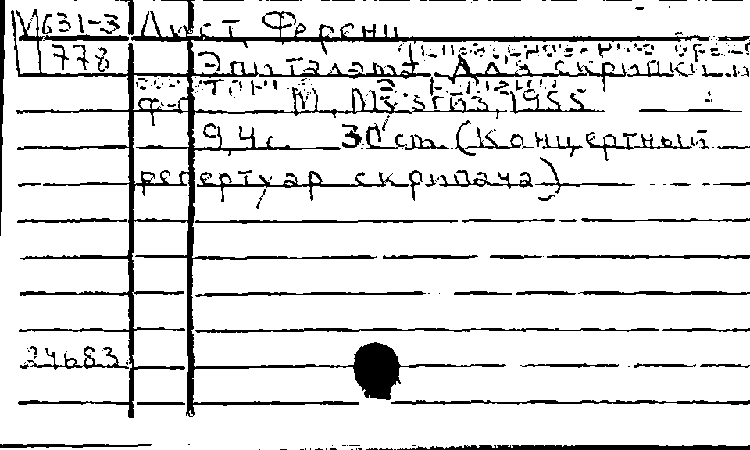 М631-3 Лист, Ференц
778 Эпиталама. Для скрипки и
ф-п. М., Музгиз, 1955
9,4 с. 30 cm. (Концертный
репертуар скрипача)
24683